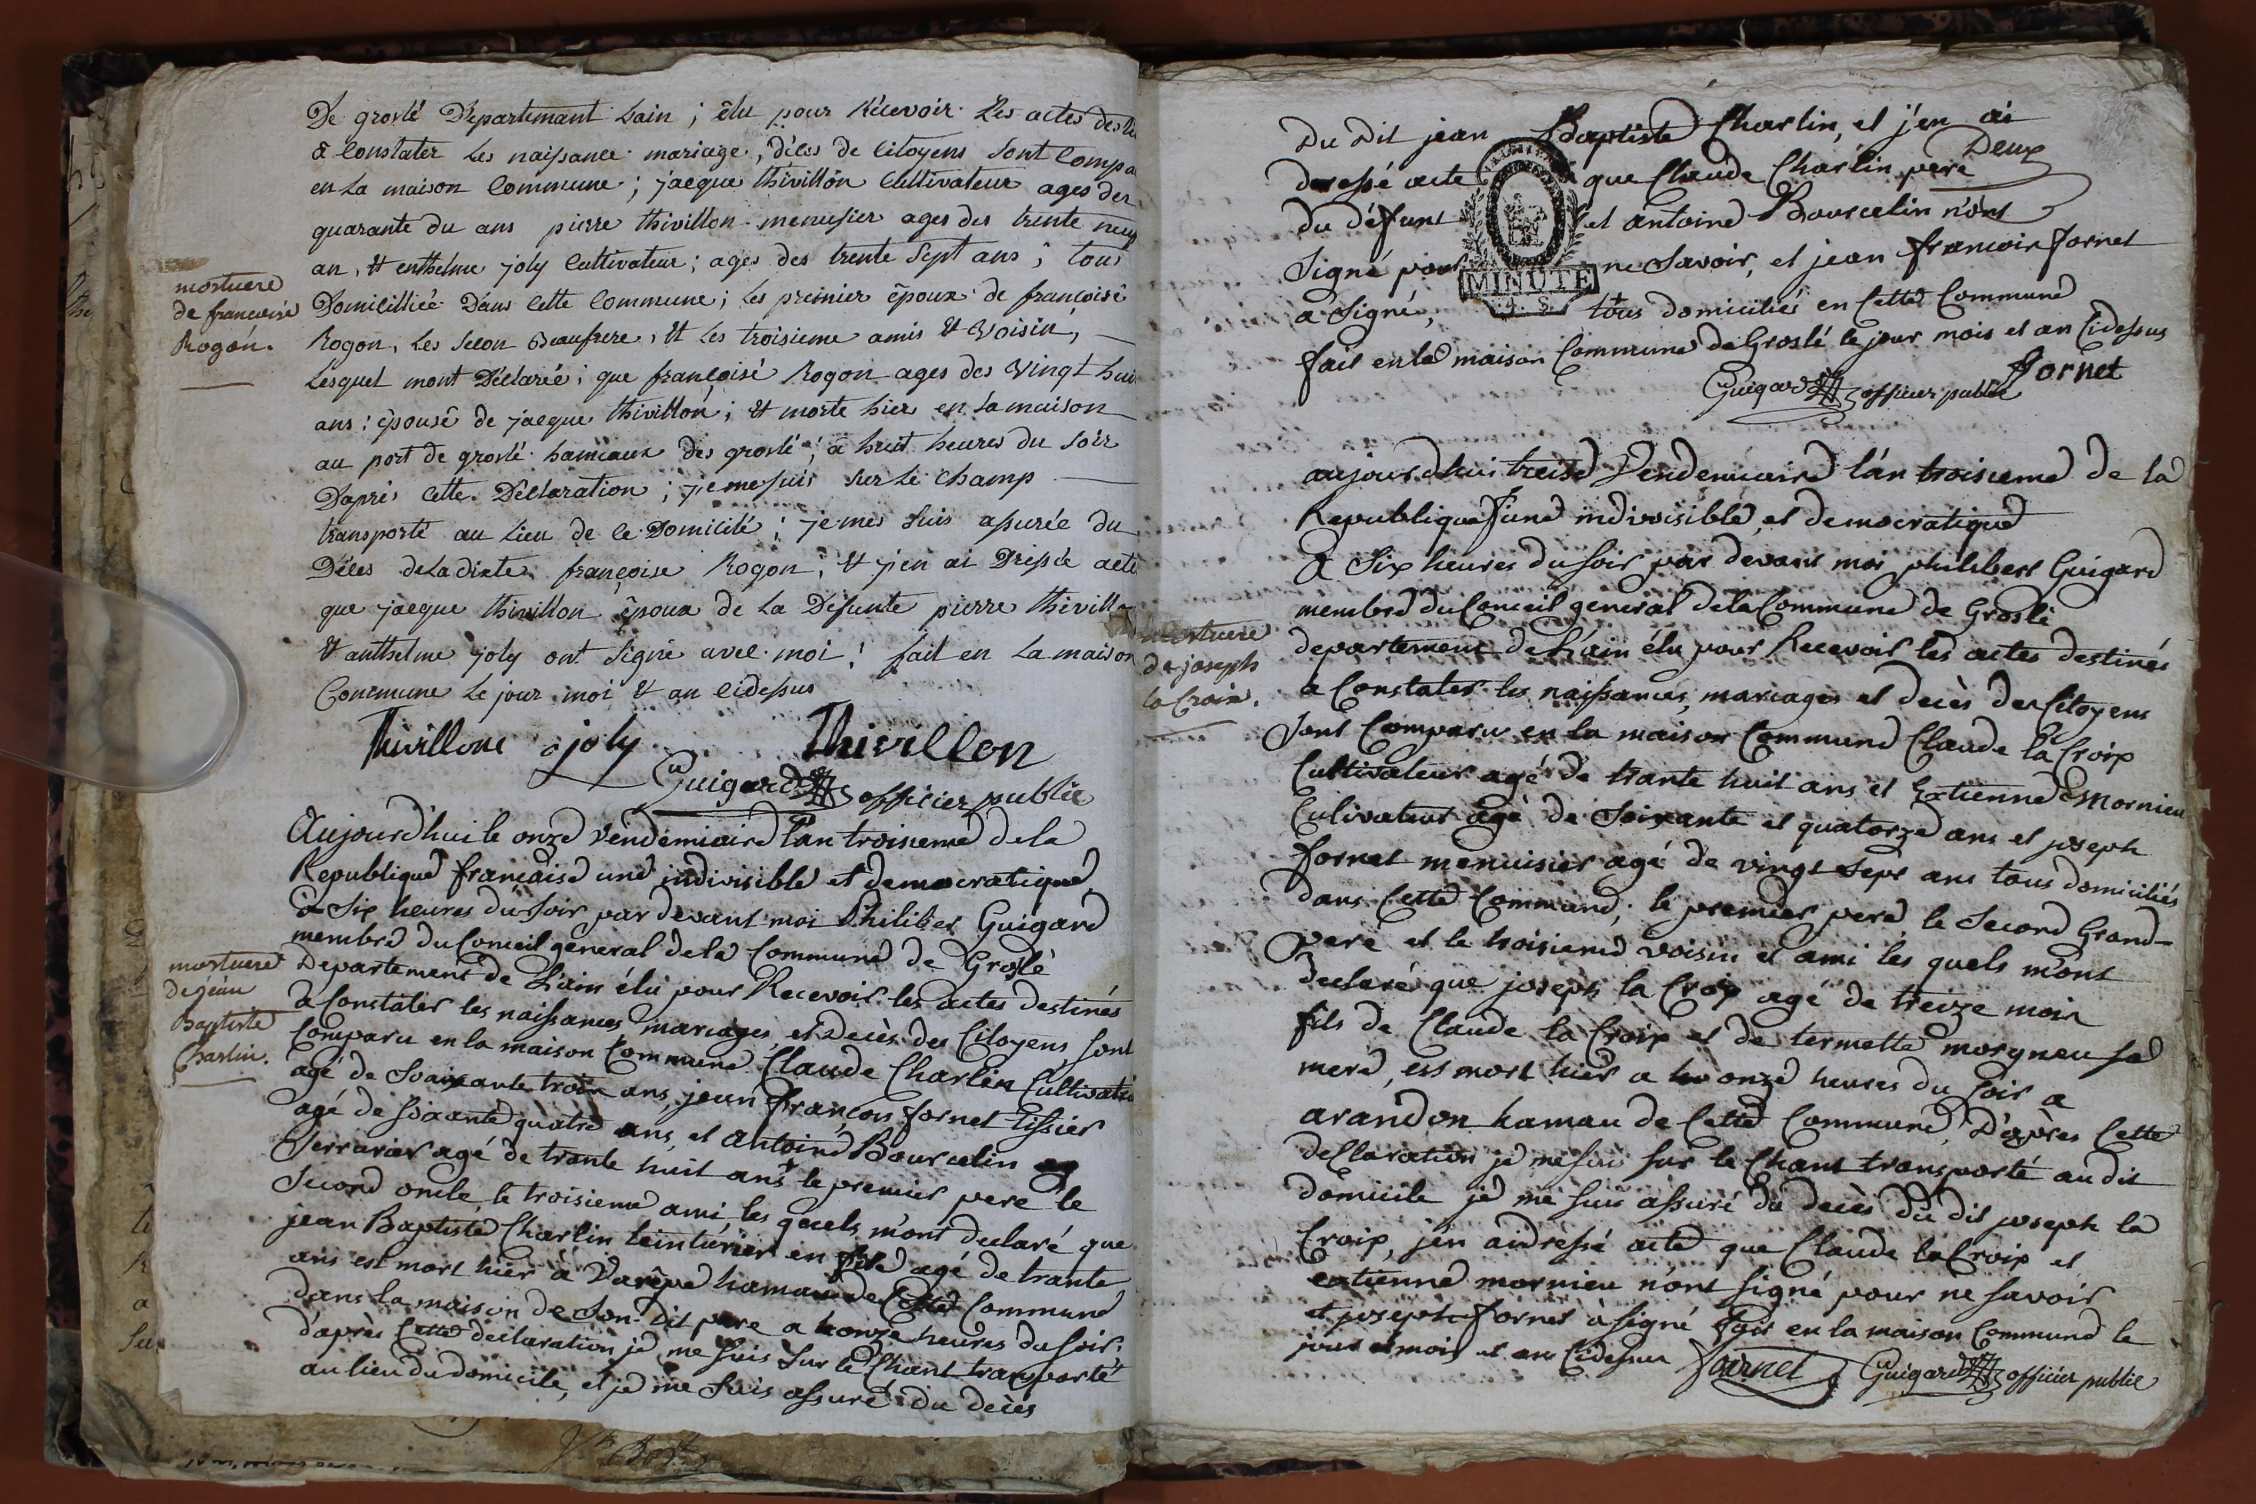 De groslé Departemant Lain ; êlu pour Récevoir Les actes des
à Constater Les naissance mariage, déces de Citoyens Sont Compa
en La maison Commune ; jacque thivillon Cultivateur ages des
quarante du ans pierre thivillon menusier ages des trente neuf
an, & enthelme joly Cultivateur ; ages des trente Sept ans ; tous
mortuere
de francoise
Rogon.
Domicilliée Dans Cette Commune ; Les premier époux de françoise
Rogon, Les Secon Beaufrere, & Les troisieme amis & Voisin,
Lesquel mont Déclarée ; que françoisé Rogon ages des Vingt huit
ans : épousê de jacque thivillon ; & morte hier en La maison
au port de groslé hameaux des groslé ; à huit heures du Soir
Dapres Cette Déclaration ; je me suis sur Le Champ
transporté au Lieu de Le Domicilé ; je mes Suis assurée du
Déces de La dixte françoise Rogon ; & j'en ai Dressée acte
que jacque thivillon époux de La Defunte pierre thivillon
& anthelme joly ont Signé avec moi ; fait en La maison
Commune Le jour moi & an Cidessus
Thivillone joly Thivillon
Guigard officier public
Aujourd'huile onze Vendemiaire l'an troisieme de la
Republique francaise une indivisible et democratique
à Six heures du soir par devant moi Philibert Guigard
membre du Conseil general de la Commune de Groslé
mortuere
de jean
Baptiste
Charlin.
Departement de L'ain élu pour Recevoir les actes destinés
a Constater les naissances mariages, et Decès des Citoyens, sont
Comparu en la maison Commune Claude Charlin Cultivate
agé de Soaixante trois ans, jean françois fornet tissier
agé de Soixante quatre ans, et Antoine Bourcelin
Serrurier agé de trante huit ans le premier pere le
Second oncle, le troisieme ami, les quels m'ont declaré que
jean Baptiste Charlin teinturier en agé de trante
ans est mort hier à Varêpe hamau de Cette Commune
dans la maison de Son dit pere a honze heures du soir.
d'après Cette declaration je me suis Sur le Chant transporté
au lieu du domicile, et je me Suis assuré du decès
Du Dit jean Baptiste Charlin, et j'en ai
Deux
dressé acte que Claude Charlin pere
du défunt et antoine Bourcelin n'ont
Signé pour ne Savoir, et jean francois fornet
MINUTE
à Signé, tous domiciliés en Cette Commune
fait en la maison Commune de Groslé le jour mois et an Cidessus
Fornet
Guigard officier public
aujourdhui treise Vendemiaire l'an troisieme de la
Republique une indivisible et democratique
A Six heures du soir par devant moi philibert Guigard
membre du Conseil general de la Commune de Groslé
mortuere
de joseph
la Croix.
departement de L'ain élu pour Recevoir les actes destinés
a Constater les naissances, mariages et decès des Citoyens
Sont Comparu en la maison Commune Claude la Croix
Cultivateur agé de trante huit ans et Extienne Mornieu
Culivateur agé de Soixante et quatorze ans et joseph
fornet menuisier agé de vingt Sept ans tous domiciliés
dans Cette Commune, le premier pere, le Second Grand-
pere et le troisieme voisin et ami les quels m'ont
declaré que joseph la Croix agé de treize mois
fils de Claude la Croix et de termette morgneu sa
mere, est mort hier a onze heures du soir a
arandon hamau de Cette Commune, D'après Cette
decllaration je me suis sur le Chant transporté au dit
domicile je me suis assuré du decès du dit joseph la
Croix, j'en ai dressé acte que Claude la Croix et
extienne mornieu n'ont signé pour ne savoir
et joseph Fornet à signé fait en la maison Commune le
jour et mois et an Cidessus Fournet Guigard officier public